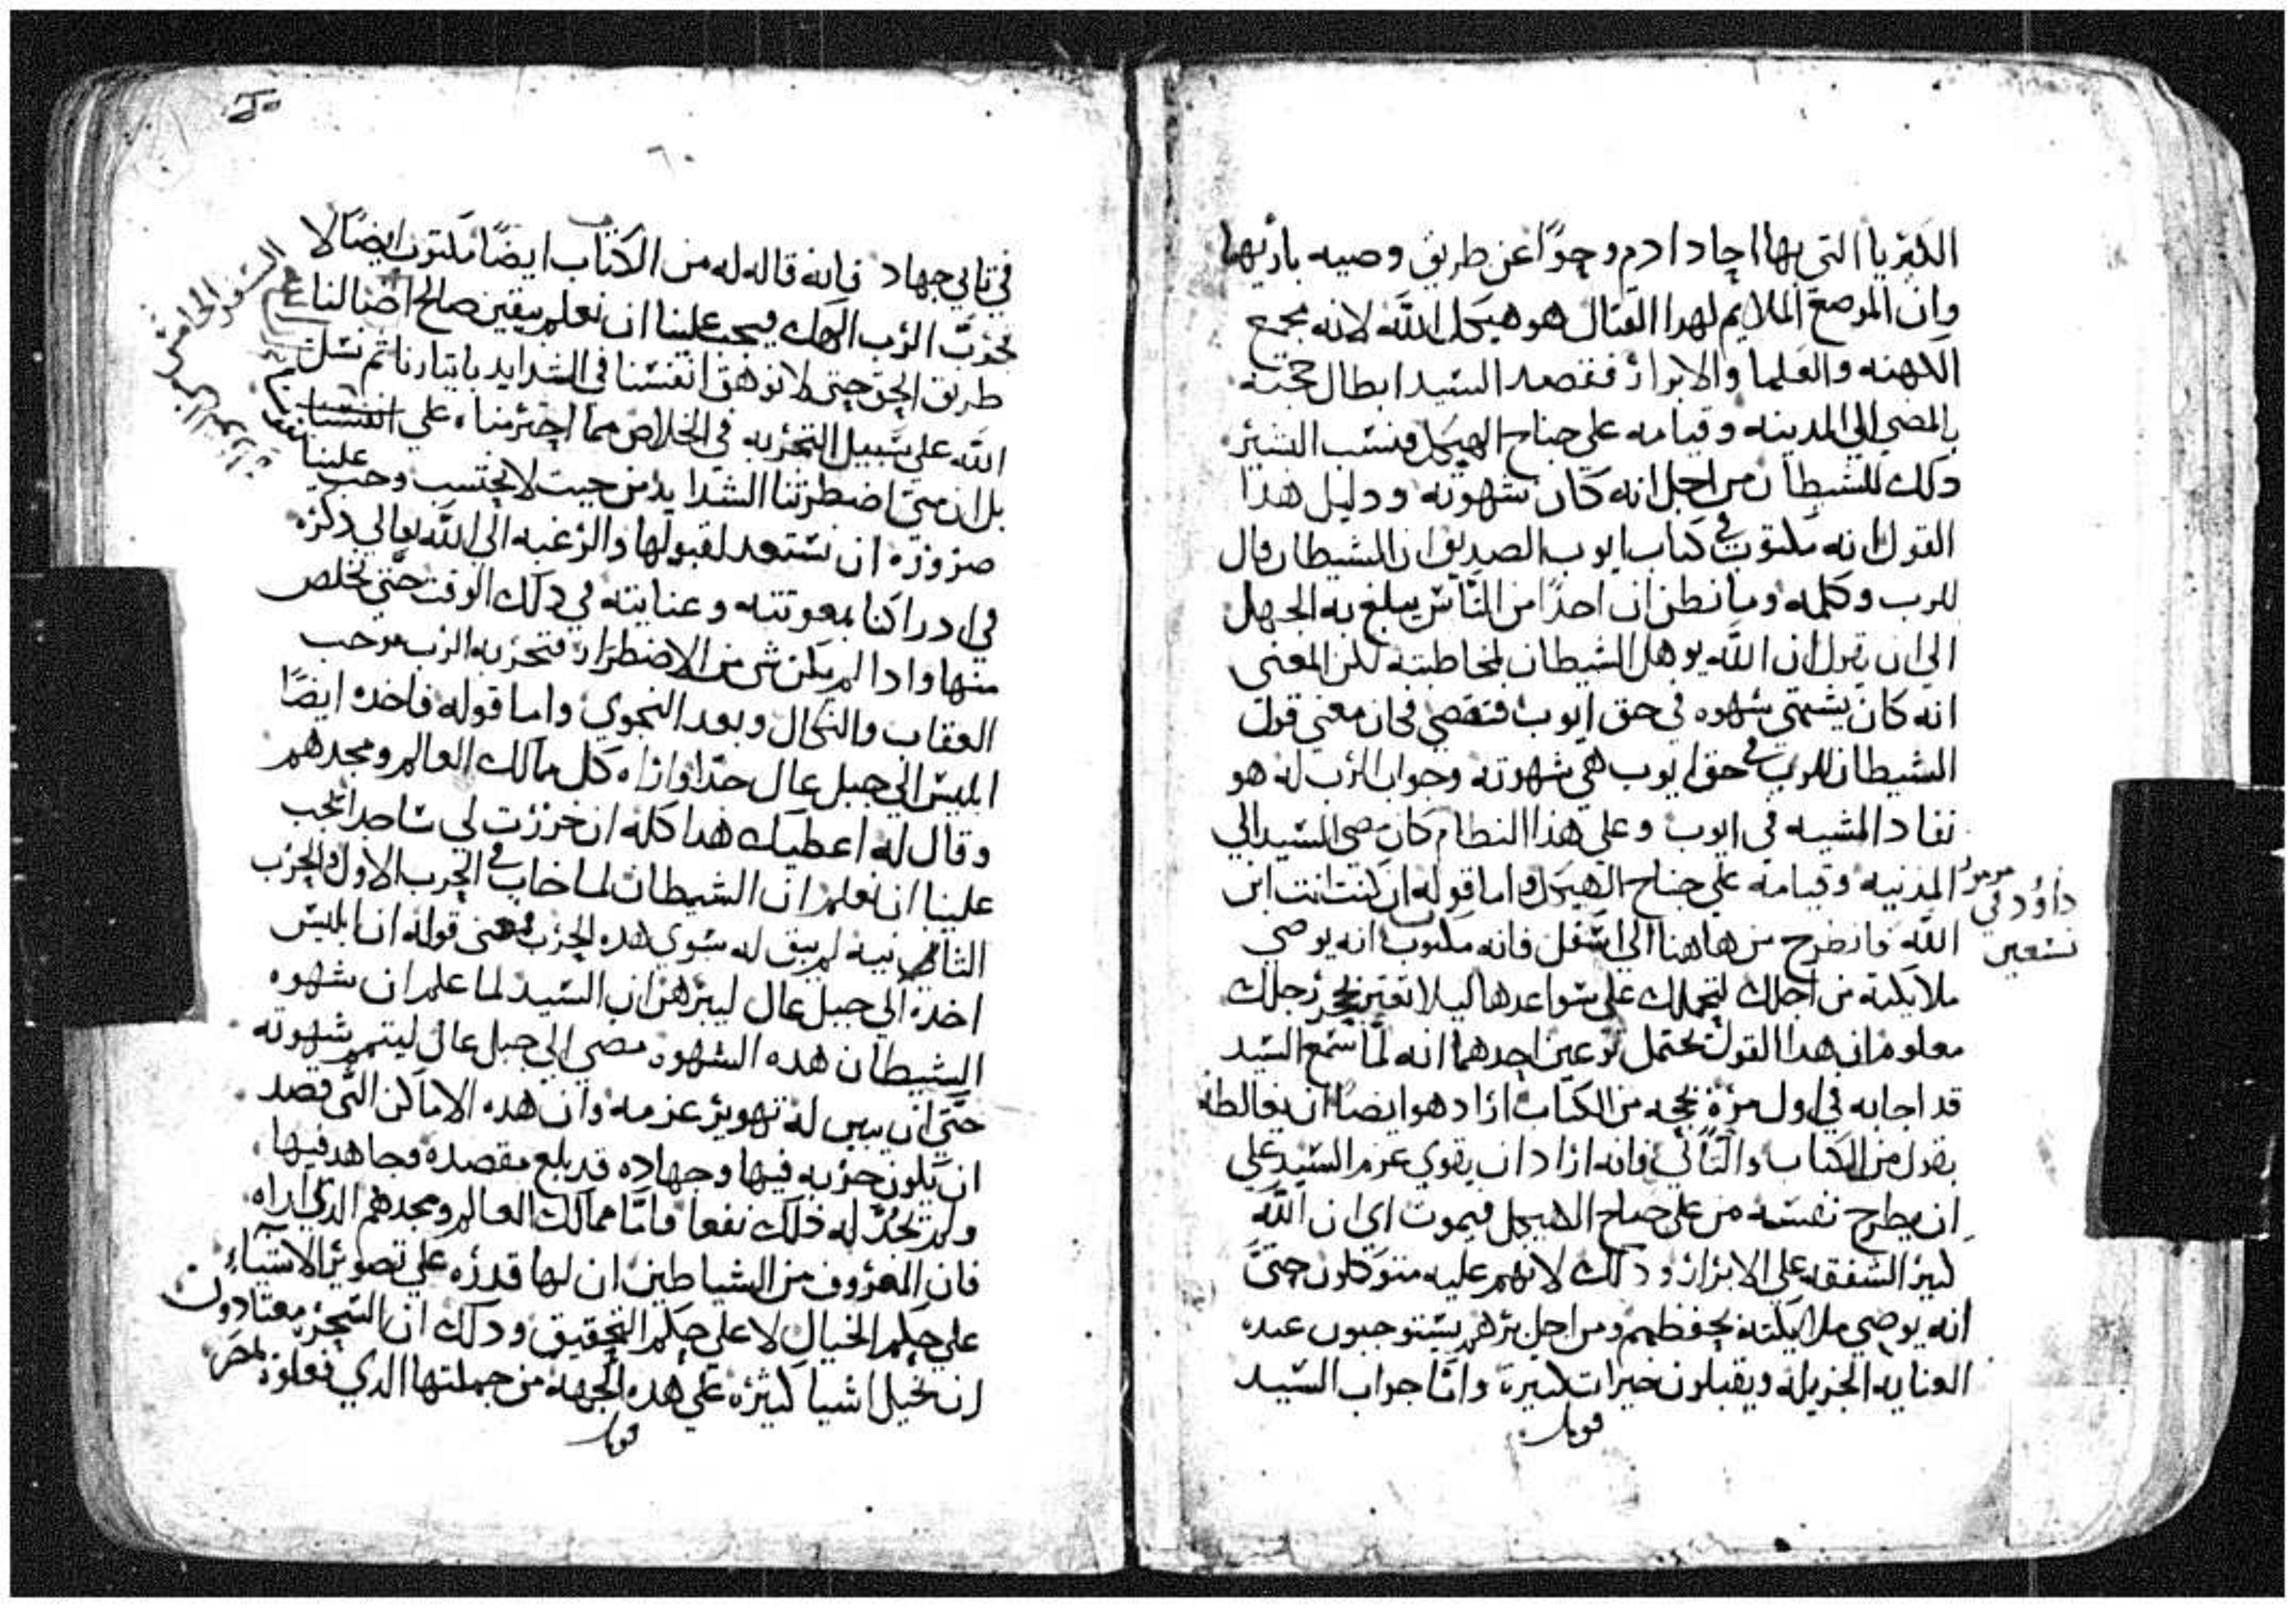 الكبريا التي بها اجاد ادم وحوا عن طريق وصيه باريها
وان الموضع الملايم لهدا القتال هو هيكل الله لانه مجمع
الكهنه والعلما والابرار فقصد السيد ابطال حجته
بالمضي الي المدينه وقيامه علي جناح الهيكل فنسب البشير
دلك للشيطان من اجل انه كان شهوته ودليل هذا
القول انه مكتوب في كتاب ايوب الصديق ان الشيطان قال
للرب وكلمه وما نظن ان احدا من الناس يبلغ به الجهل
الي ان يقول ان الله يوهل الشيطان لمخاطبته لكن المعني
انه كان يشتهي شهوه في حق ايوب فتقضي فكان معني قول
الشيطان للرب في حق ايوب هي شهوته وجواب الرب له هو
نفاد المشيه في ايوب وعلي هذا النظام كان مضي السيد الي
المدنيه وقيامه علي جناح الهيكل واما قوله ان كنت انت ابن
الله فانطرح من هاهنا الي اسفل فانه مكتوب انه يوصي
مزمور
داوود في
تسعين
ملايكته من اجلك لتحملك علي سواعدها ليلا تعتر بحجر رجلك
معلوم ان هدا القول يحتمل نوعين احدهما انه لما سمع السيد
قد اجابه في اول مرة بحجه من الكتاب اراد هو ايضا ان يغالطه
بقول من الكتاب والتاني فانه اراد ان يقوي عزم السيد علي
ان يطرح نفسه من علي جناح الهيكل فيموت اي ان الله
كبير الشفقه علي الابرار ودلك لانهم عليه متوكلون حتي
انه يوصي ملايكته بحفظهم ومن اجل برهم يستوجبون عنده
العنايه الجزيله ويقبلون خيرات كبيرة واما جواب السيد
قوبل
٦٠
في تاني جهاد فانه قاله له من الكتاب ايضا مكتوب ايضا لا
تجرب الرب الهك فيجب علينا ان نعلم بيقين صالح اصنا لنا علم
طريق الحق حتي لا نوهق انفسنا في الشدايد باتيارنا تم نسل
الله علي سبيل التجربه في الخلاص مما اجترمناه علي انفسنا
بل ان متي اضطرتنا الشدايد من حيت لا نحتسب وجب علينا
ضروره ان نستعد لقبولها والرغبه الي الله تعالي دكره
في ادراكنا بمعونته وعنايته في دلك الوقت حتي نخلص
منها وادا لم يكن شي من الاضطرار فتجربه الرب توجب
العقاب والنكال وبعد النجوي واما قوله فاخده ايضا
ابليس الي جبل عال جدا واراه كل ممالك العالم ومجدهم
وقال له اعطيك هدا كله ان خررت لي ساجدا يجب
علينا ان نعلم ان الشيطان لما خاب في الحرب الاول والحرب
الثانيه لم يبق له سوي هده الحرب فمعني قوله ان ابليس
اخده الي جبل عال ليبرهن ان السيد لما علم ان شهوه
الشيطان هده الشهوه مضي الي جبل عال ليتمم شهوته
حتي ان يبين له تهوير عزمه وان هده الاماكن التي قصد
ان يكون حربه فيها وجهاده قد بلغ مقصده وجاهد فيها
ولم تجد له ذلك نفعا فاما ممالك العالم ومجدهم الدي اراه
فان المعروف من الشياطين ان لها قدره علي تصوير الاشياء
علي حكم الخيال لا علي حكم التحقيق ودلك ان السحره معتادون
ان تخيل اشيا كثيره علي هده الجهة من جملتها الدي فعلوه
قوبل